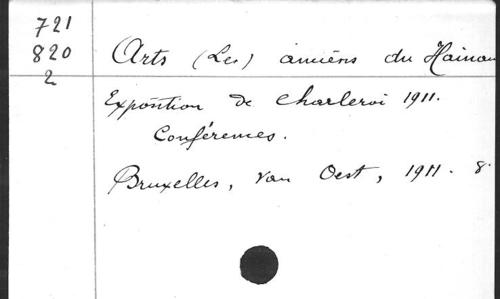 721
820
2
Arts (Les) anciens du Hainau
Exposition de Charleroi 1911.
Conférences.
Bruxelles, Van Oest, 1911. 8°